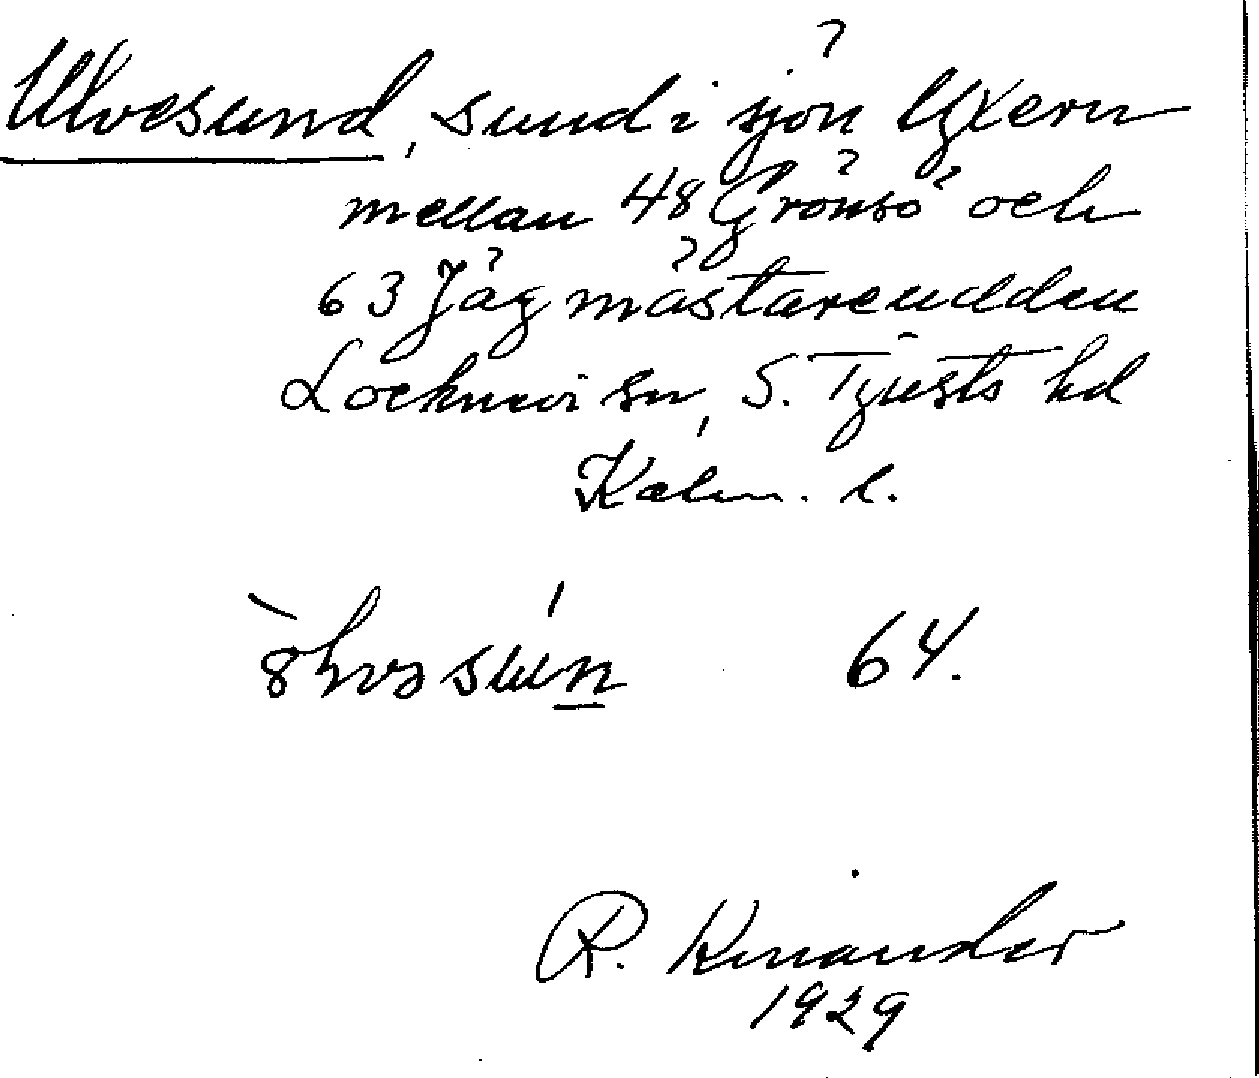 Ulvesund, sund i sjön Yxern
mellan 48 Grönsö och
63 Jägmästareudden
Locknevi sn, S. Tjusts hd
Kalm. l.
64.
R. Kinander
1929